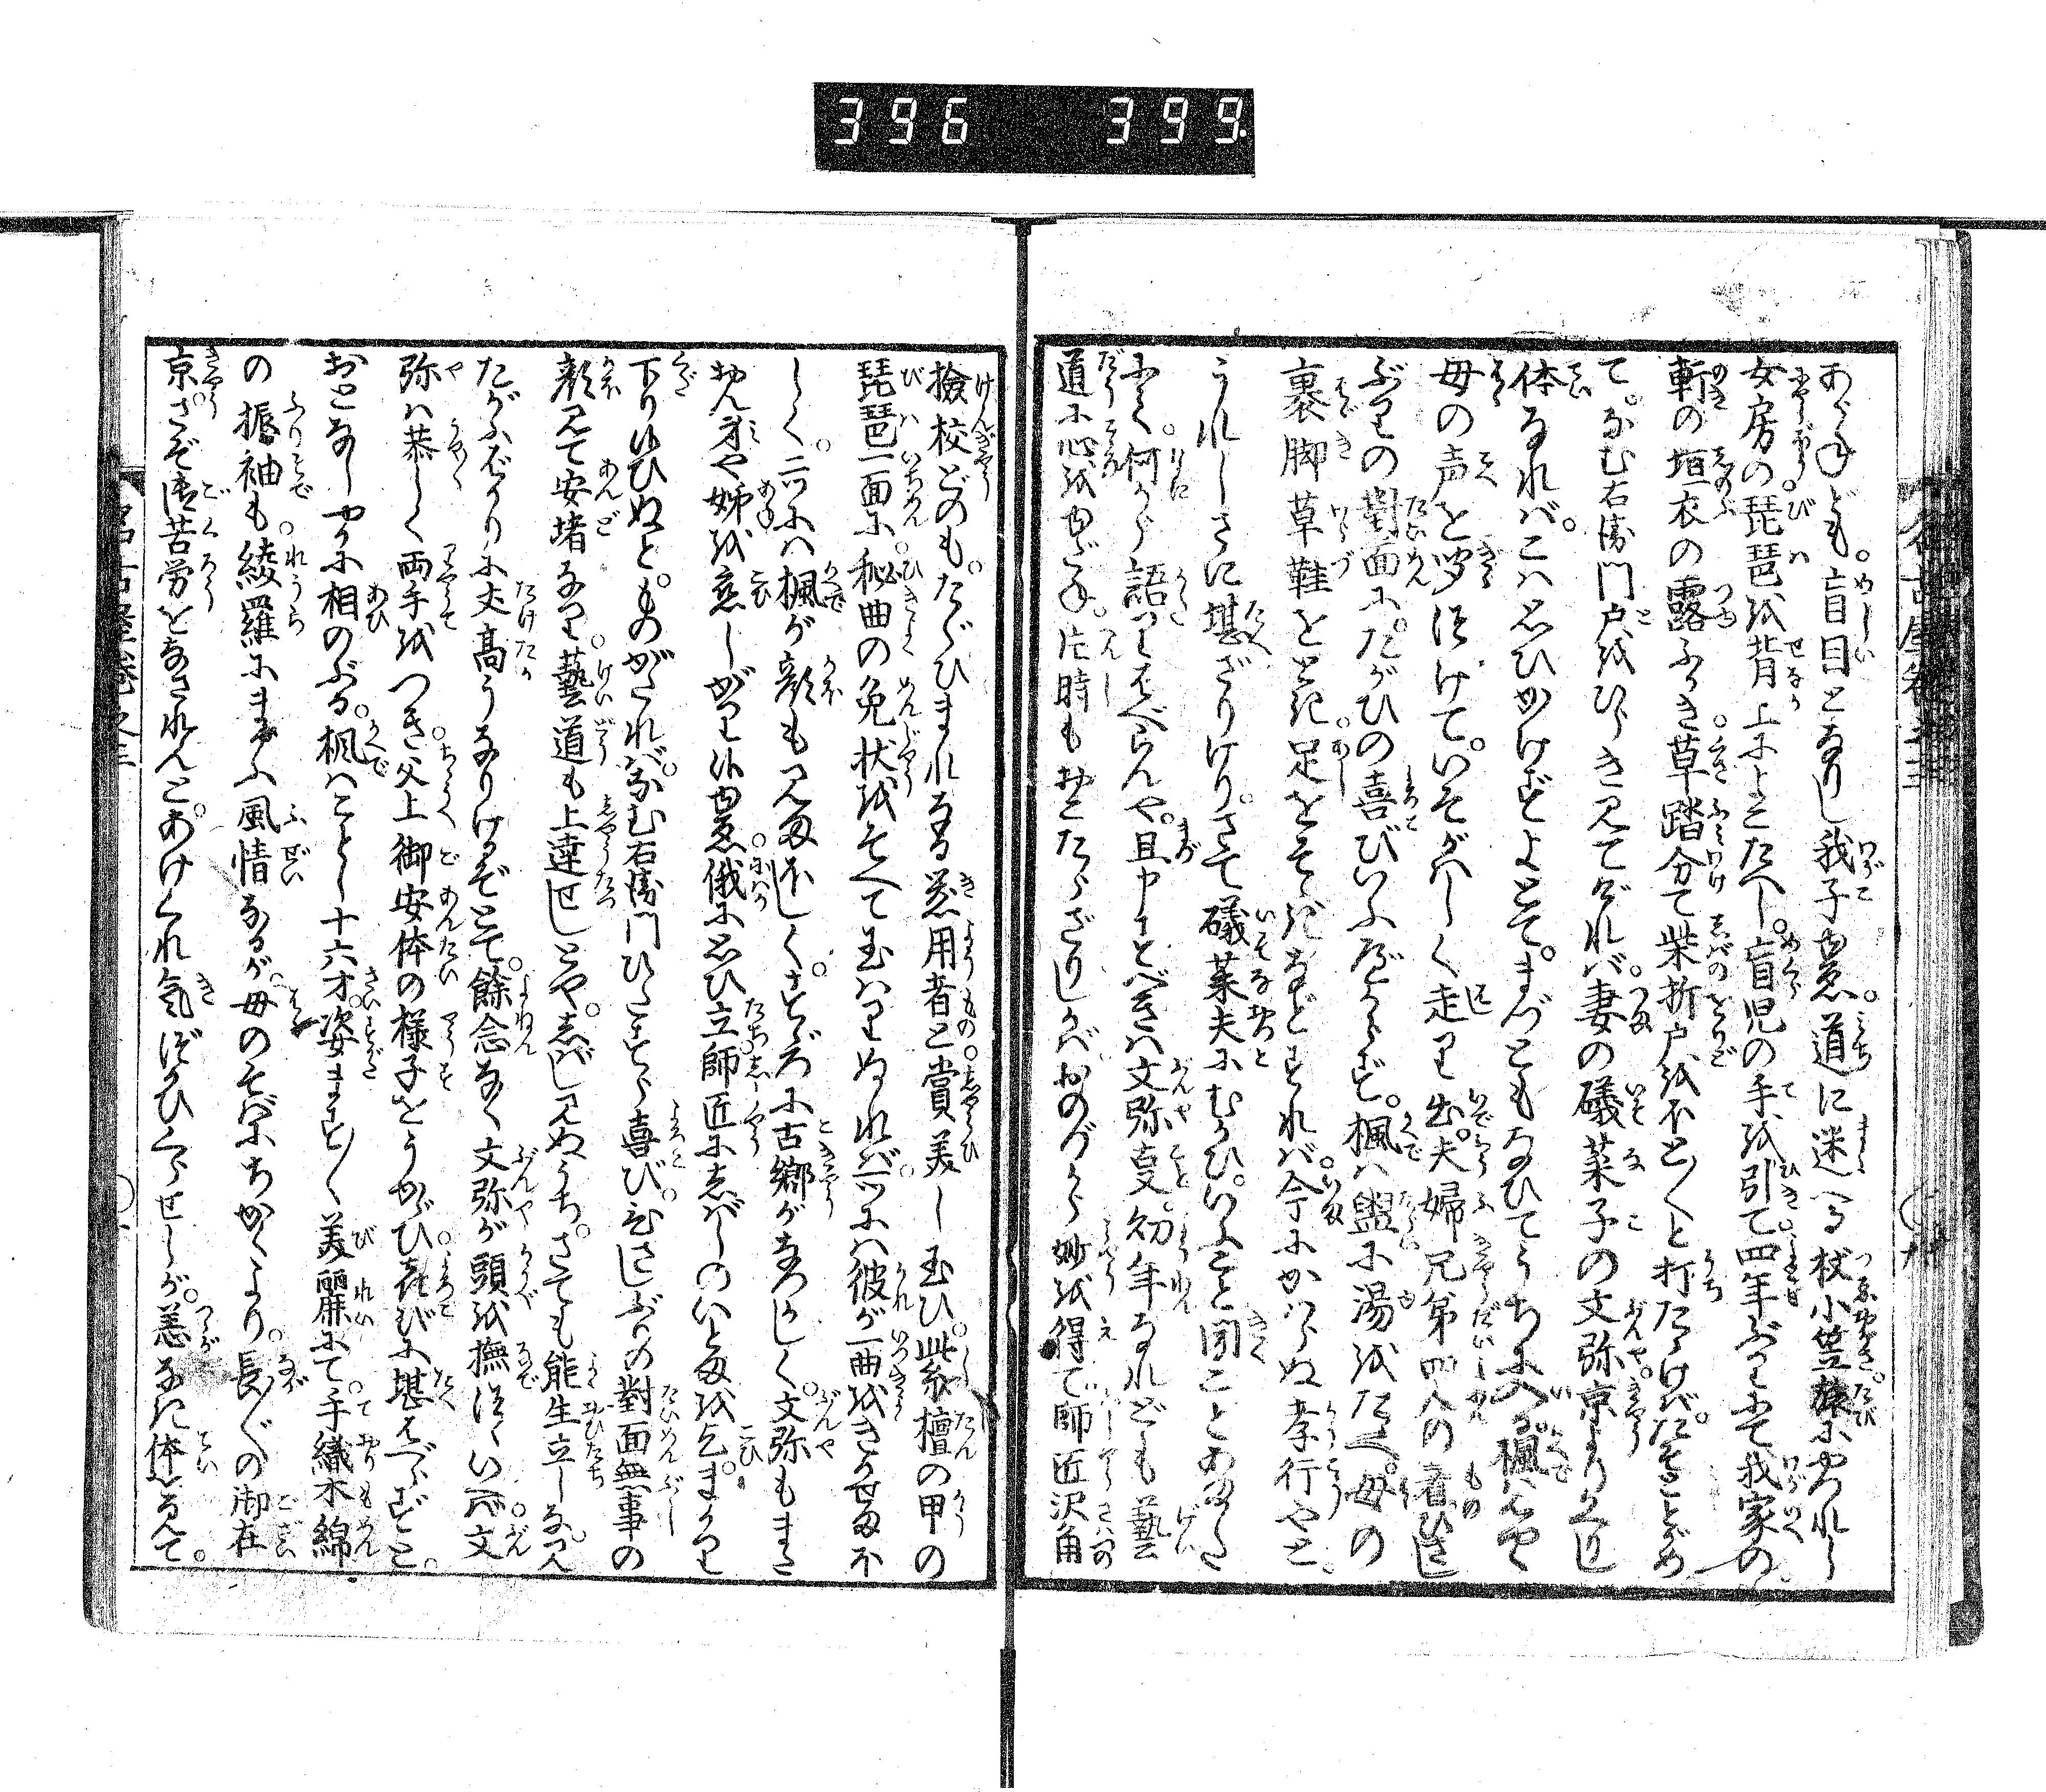 396 399
あらねども。盲目となりし我子ゆゑ。道に迷へる杖小笠。旅にやつれし
女房の。琵琶を背上によこたへし。盲児の手を引て。四年ぶりにて我家の。
軒の垣衣の露ふかき。草踏分て柴折戸を。ほと〱と打たゝけば。たそとがめ
て。なむ右衛門戸をひらき見てあれば。妻の礒菜子の文弥。京よりかへりし
体なれば。こは思ひがけずよとて。まづともなひてうちに入る。楓は
母の声と聞つけて。いそがはしく走り出。夫婦兄弟四人の者。ひさし
ぶりの対面に。たがひの喜びいふばかりもあらず。楓は盥に湯をたゝへ。母の
裹脚草鞋をとき。足をそゝぎなどすれば。今にかはらぬ孝行やと。
うれしさに堪ざりけり。さて礒菜夫にむかひ。いふこと聞ことあまた
にて。何から語りはべらんや。且申すべきは文弥事。幼年なれども芸
道に心をゆだね。片時もおこたらざりしかば。おのづから妙を得て。師匠沢角
撿校どのも。たぐひまれなる器用者と。賞美し玉ひ。紫檀の甲の
琵琶一面に。秘曲の免状をそへて玉はりぬれば。一ツには彼が一曲をきかせまほ
しく。二ツには楓が顔も見まほしく。そゞろに古郷がなつかしく。文弥もまた
おん身や姉を恋しがり候ゆゑ。俄に思ひ立。師匠にしばしのいとまを乞。まかり
下り候ひぬと。ものがたれば。なむ右衛門ひたすら喜び。ひさしぶりの対面無事の
顔見て安堵なり。芸道も上達せしとや。しばし見ぬうち。さても能生立しな。見
たがふばかりに丈高うなりけるぞとて。余念なく文弥が頭を撫つゝいへば。文
弥は恭しく両手をつき。父上御安体の様子をうかゞひ。喜びに堪はべらずと。
おとなしやかに相のぶる。楓はことし十六才。姿ます〱美麗にて。手織木綿
の振袖も。綾羅にまがふ風情なるが。母のそばにちかくより。長〱の御在
京。さぞ御苦労をなされんと。あけくれ気づかひくらせしが。恙なき体を見て。